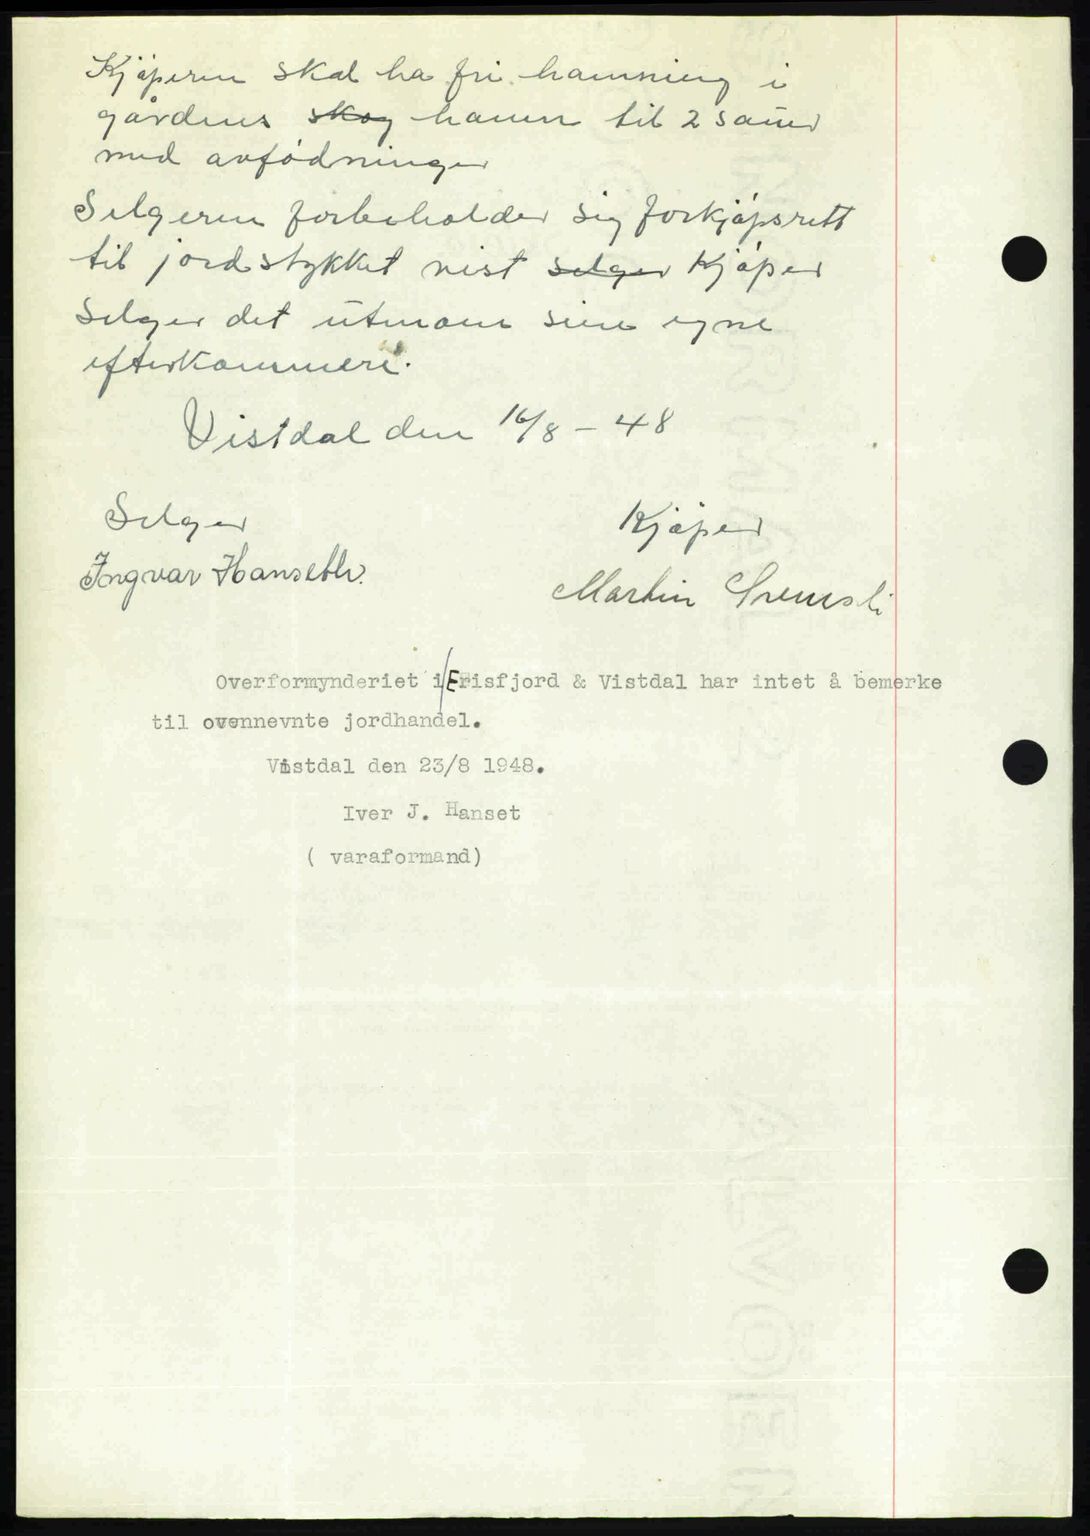 Kjøperen skal ha fri havnning i
gårdens skog havn til 2 sauer
med avfødninger
Selgeren forbeholder sig forkjøpsrett
til jordstykket vist selger Kjøper
Selger det utenom sine egne
efterkommere.
Vistdal den 16/8 - 48
Selger
Kjøper
Ingvar Hanseth.
Martin Svensli
Overformynderiet i/Erisfjord & Vistdal har intet å bemerke
til ovennevnte jordhandel.
Vistdal den 23/8 1948.
Iver J. Hanset
( varaformand)